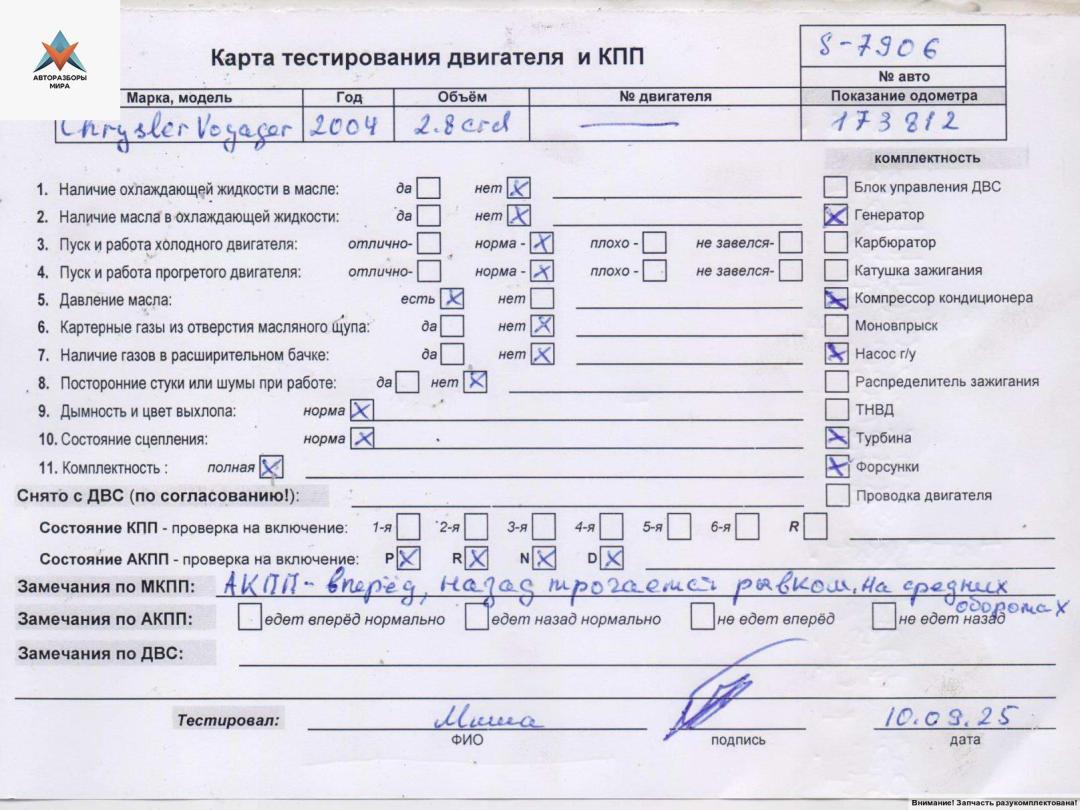 АВТОРАЗБОРЫ
МИРА
Карта тестирования двигателя и КПП
S-7906
№ авто
Марка, модель Год Объём № двигателя Показание одометра
Chrysler Voyager 2004 2.8 crd 173 812
комплектность
1. Наличие охлаждающей жидкости в масле: да нет
Блок управления ДВС
2. Наличие масла в охлаждающей жидкости: да нет
Генератор
3. Пуск и работа холодного двигателя: отлично- норма - плохо - не завелся-
Карбюратор
4. Пуск и работа прогретого двигателя: отлично- норма - плохо - не завелся-
Катушка зажигания
5. Давление масла: есть нет
Компрессор кондиционера
6. Картерные газы из отверстия масляного щупа: да нет
Моновпрыск
7. Наличие газов в расширительном бачке: да нет
Насос г/у
8. Посторонние стуки или шумы при работе: да нет
Распределитель зажигания
9. Дымность и цвет выхлопа: норма
ТНВД
10. Состояние сцепления: норма
Турбина
11. Комплектность : полная
Форсунки
Снято с ДВС (по согласованию!):
Проводка двигателя
Состояние КПП - проверка на включение: 1-я 2-я 3-я 4-я 5-я 6-я R
Состояние АКПП - проверка на включение: P R N D
Замечания по МКПП: АКПП - вперёд, назад трогается рывком. на средних
оборотах
Замечания по АКПП: едет вперёд нормально едет назад нормально не едет вперёд не едет назад
Замечания по ДВС:
Тестировал: Миша 10.09.25
ФИО подпись дата
Внимание! Запчасть разукомплектована!